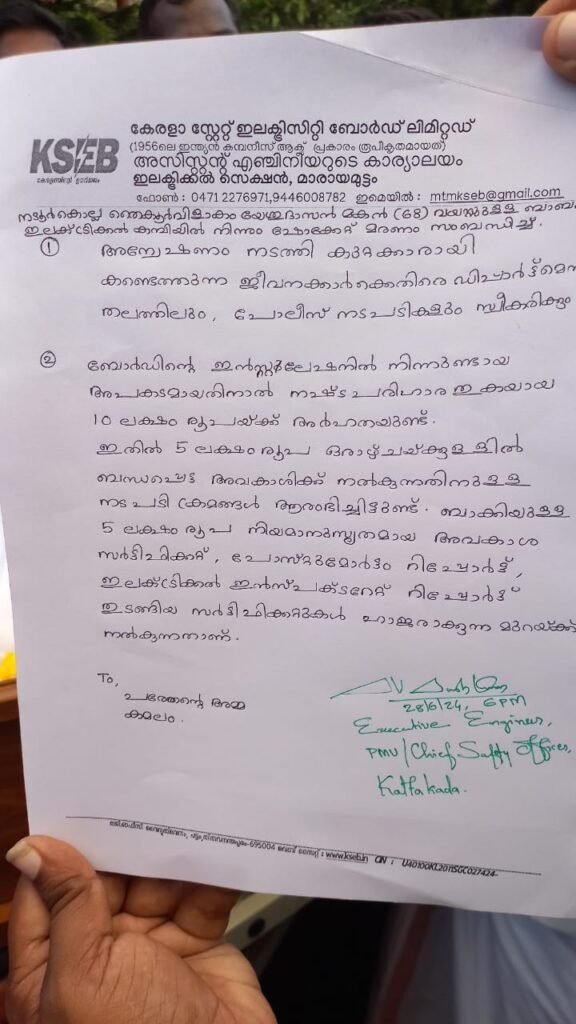 KSEB
കേരളാ സ്റ്റേറ്റ് ഇലക്ട്രിസിറ്റി ബോർഡ് ലിമിറ്റഡ്
(1956ലെ ഇന്ത്യൻ കമ്പനീസ് ആക്ട് പ്രകാരം രൂപീകൃതമായത്)
അസിസ്റ്റന്റ് എഞ്ചിനീയറുടെ കാര്യാലയം
ഇലക്ട്രിക്കൽ സെക്ഷൻ, മാരായമുട്ടം
ഫോൺ : 0471 2276971,9446008782 ഇമെയിൽ : mtmkseb@gmail.com
മകൻ (68) വയസ്സുള്ള
ഇലക്ട്രിക്കൽ കമ്പിയിൽ നിന്നും ഷോക്കേറ്റ് മരണം സംബന്ധിച്ച്.
① അന്വേഷണം നടത്തി കുറ്റക്കാരായി
കണ്ടെത്തുന്ന ജീവനക്കാർക്കെതിരെ
തലത്തിലും, പോലീസ് നടപടികളും സ്വീകരിക്കും
② ബോർഡിന്റെ ഇൻസ്റ്റുലേഷനിൽ നിന്നുണ്ടായ
അപകടമായതിനാൽ നഷ്ടപരിഹാര തുകയായ
10 ലക്ഷം രൂപയ്ക്ക് അർഹതയുണ്ട്.
ഇതിൽ 5 ലക്ഷം രൂപ ഒരാഴ്ചയ്ക്കുള്ളിൽ
ബന്ധപ്പെട്ട അവകാശിക്ക് നൽകുന്നതിനുള്ള
നടപടി ക്രമങ്ങൾ ആരംഭിച്ചിട്ടുണ്ട്. ബാക്കിയുള്ള
5 ലക്ഷം രൂപ നിയമാനുസൃതമായ അവകാശ
സർട്ടിഫിക്കറ്റ്, പോസ്റ്റുമോർട്ടം റിപ്പോർട്ട്,
ഇലക്ട്രിക്കൽ ഇൻസ്പക്ടറേറ്റ് റിപ്പോർട്ട്
തുടങ്ങിയ സർട്ടിഫിക്കറ്റുകൾ ഹാജരാകുന്ന മുറയ്ക്ക്
നൽകുന്നതാണ്.
To,
പരേതന്റെ അമ്മ
കമലം.
28/6/24, 6PM
Executive Engineer,
PMU/Chief Safty Officer,
Kattakada.
695004 വെബ് സൈറ്റ് : www.kseb.in CIN : U40100KL2011SGC027424